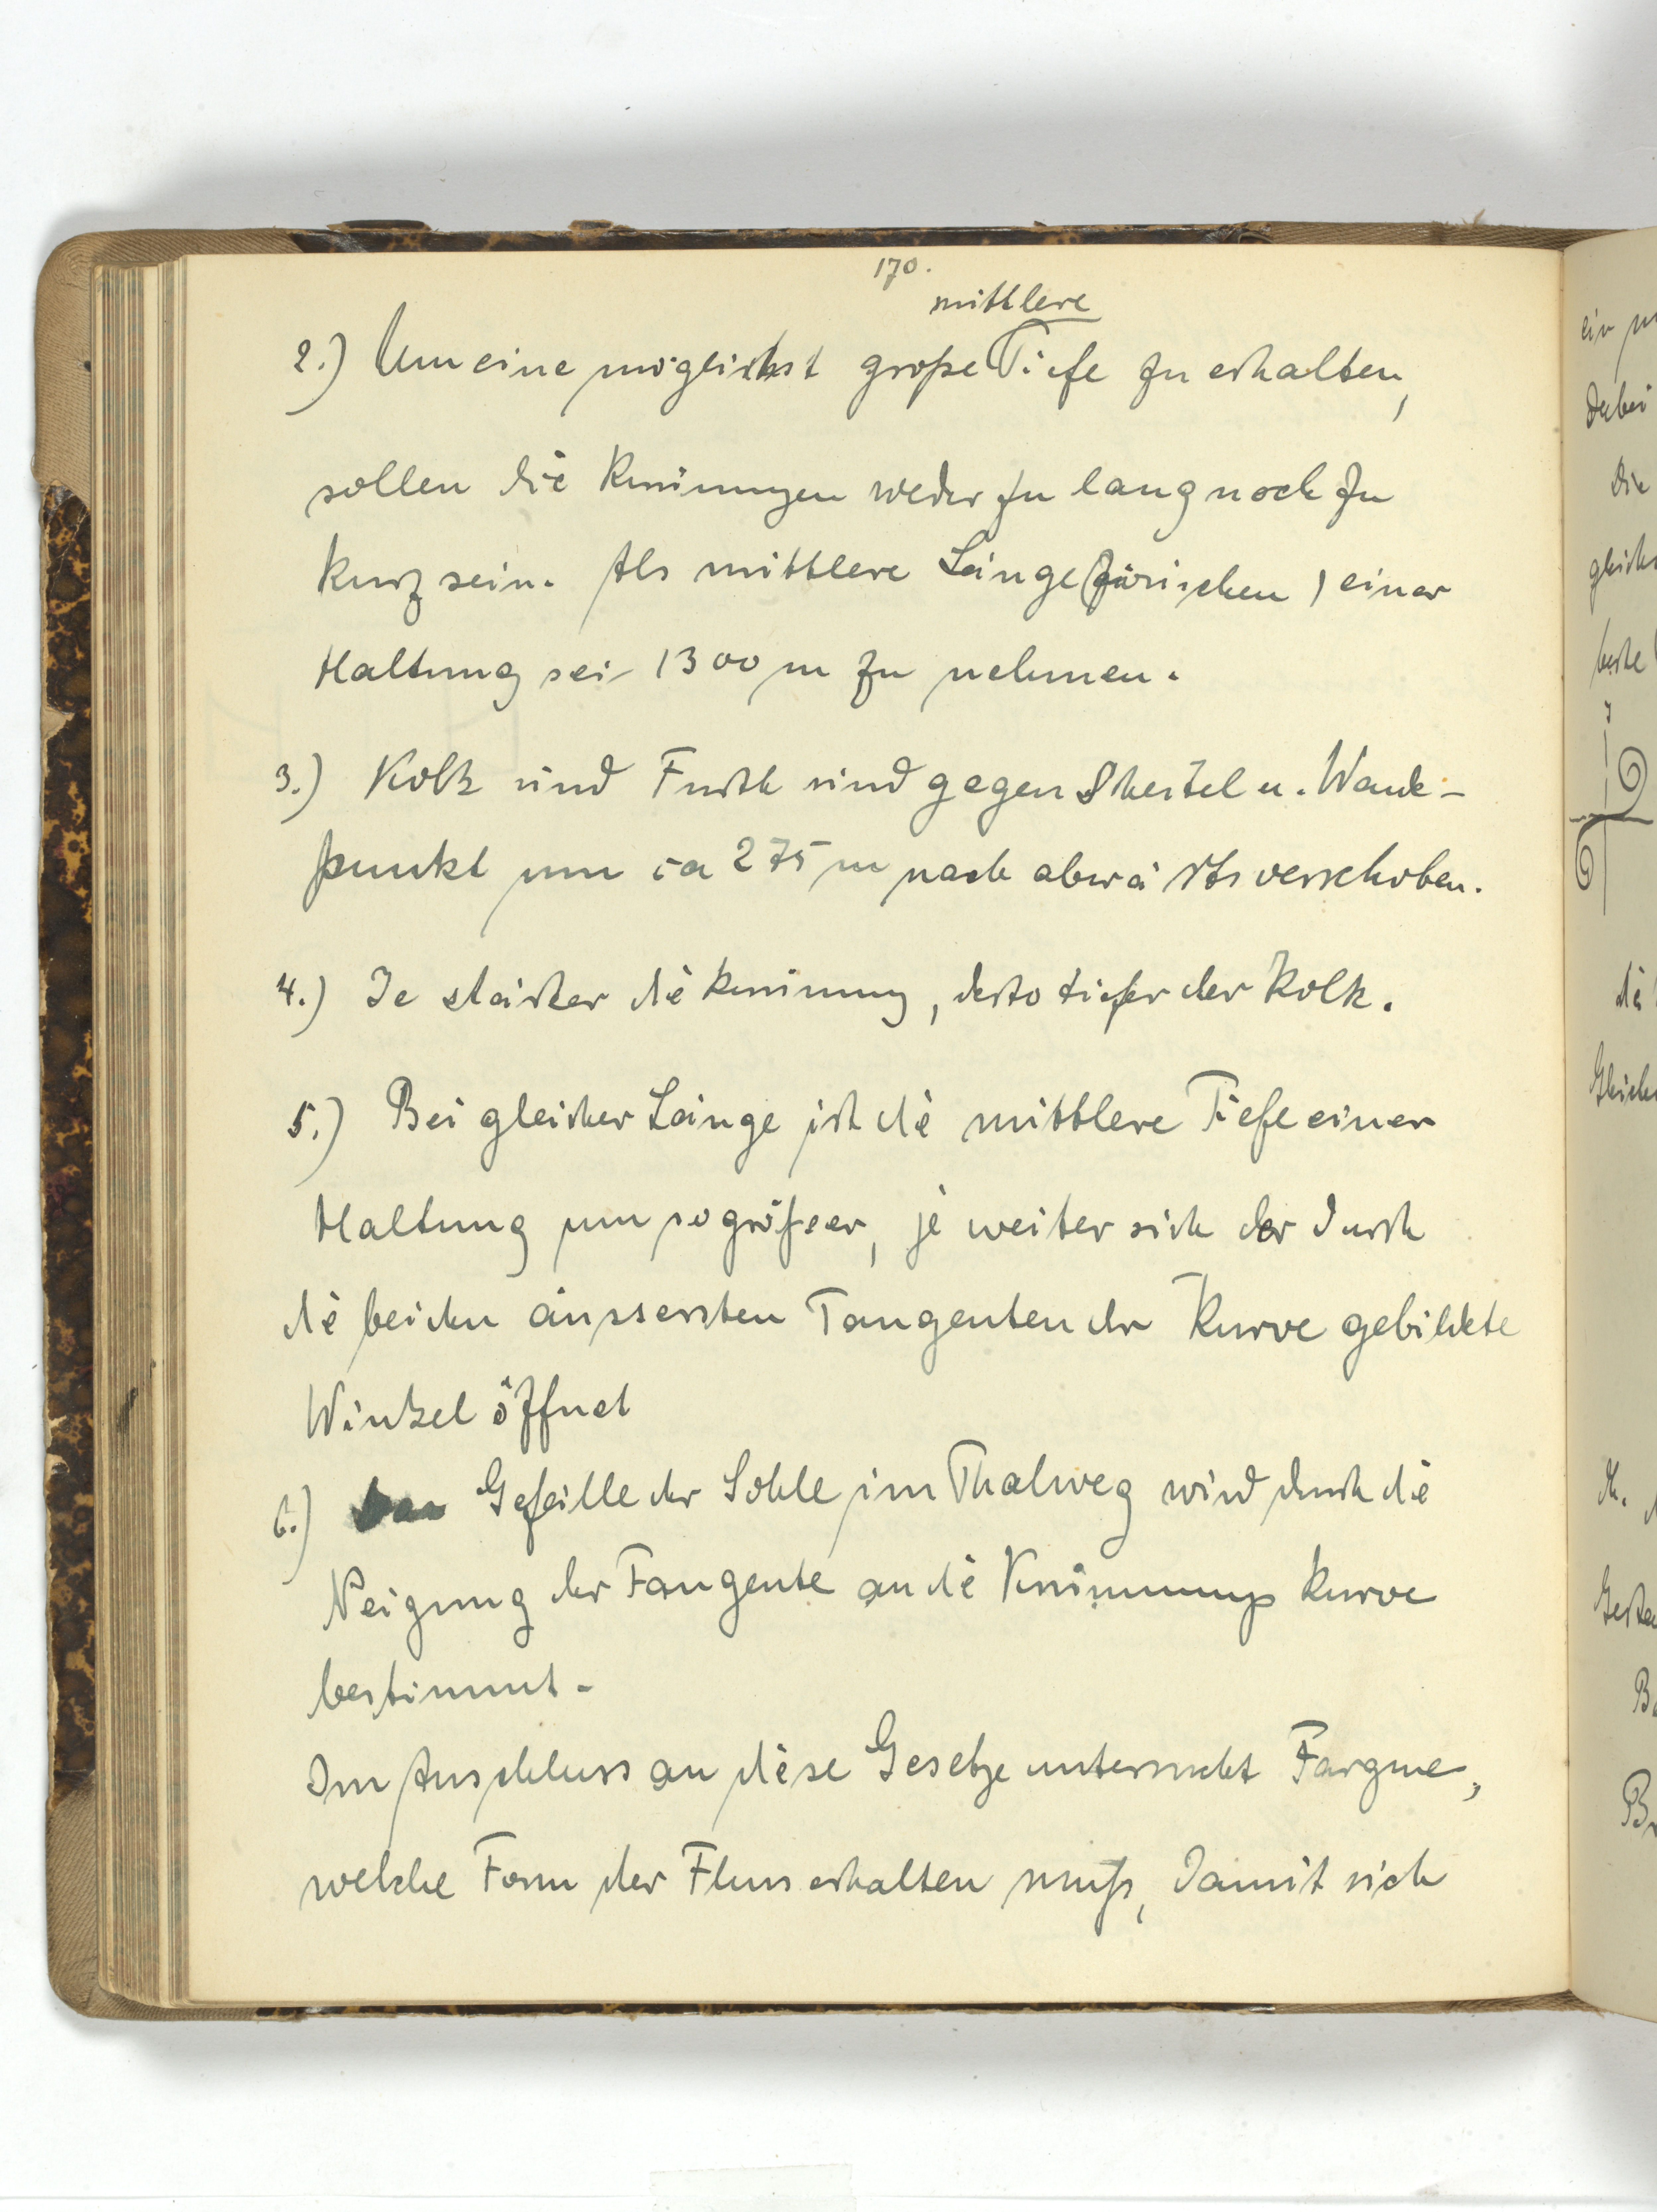 170.
mittlere
2.) Um eine möglichst große Tiefe zu erhalten,
sollen die Krümungen weder zu lang noch zu
kurz sein. Als mittlere Länge (zwischen) einer
Haltung sei 1300 m zu nehmen.
3.) Kolk und Furth sind gegen Scheitel u. Wende-
punkt um ca 275 m nach abwärts verschoben.
4.) Je stärker die Krümung, desto tiefer der Kolk.
5.) Bei gleicher Länge ist die mittlere Tiefe einer
Haltung um so größer, je weiter sich der durch
die beiden äussersten Tangenten der Kurve gebildete
Winkel öffnet
6.) Das Gefälle der Sohle im Thalweg wird durch die
Neigung der Tangente an die Krümmungskurve
bestimmt.
Im Anschluss an diese Gesetze untersucht Fargue,
welche Form der Fluss erhalten muß, damit sich